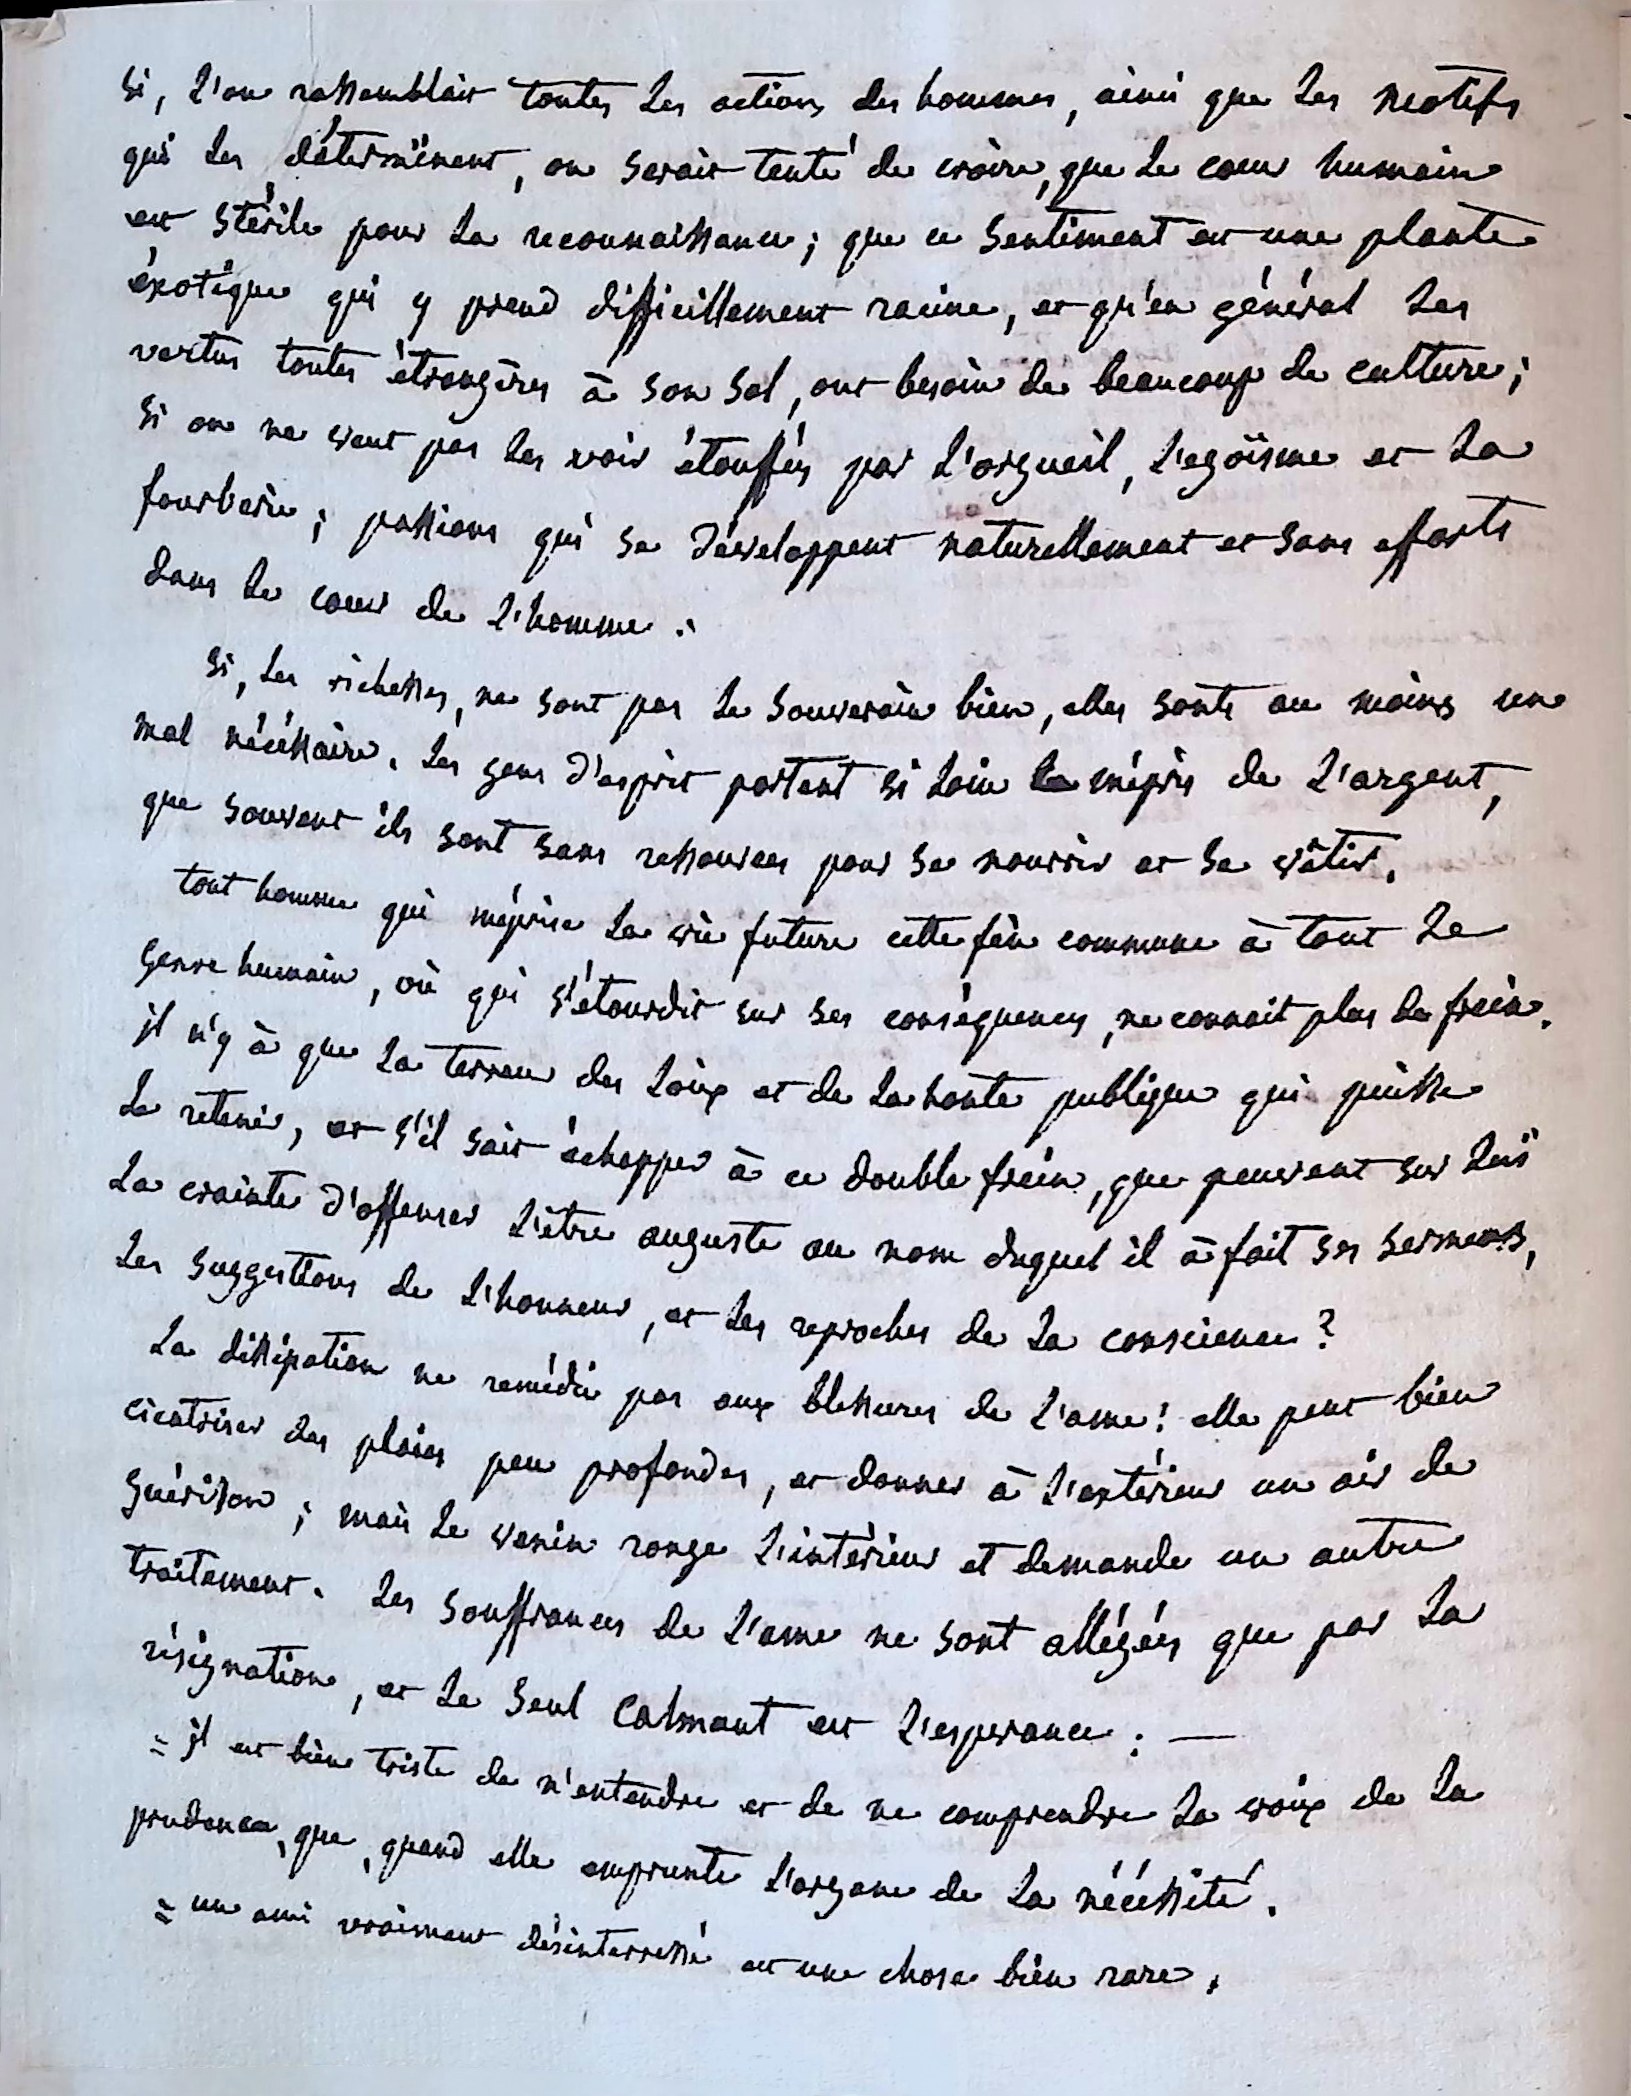 si, l'on rassemblait toutes les actions des hommes, ainsi que les motifs
qui les détermïnent, on serait tenté de croire, que le coeur humain
est stérile pour la reconnaissance; que ce sentiment est une plante
éxotique qui y prend difficillement racine, et qu'en général les
vertus toutes étrangères à son sol, ont besoin de beaucoup de culture;
si on ne veut pas les voir étouffés par l'orgueil, l'egoïsme et la
fourberie; passions qui se développent naturellement et sans efforts
dans le coeur de l'homme.
si, les richesses, ne sont pas le souverain bien, elles sonts au moins un
mal nécéssaire. les gens d'esprit portent si loin le mépris de l'argent,
que souvent ils sont sans ressources pour se nourrir et se vêtir.
tout homme qui méprise la vie future cette fin commune à tout le
genre humain, où qui s'étourdit sur ses conséquences, ne connait plus de frein.
jl n'y à que la terreur des loix et de la honte publique qui puisse
le retenir, et s'il sait échapper à ce double frein, que peuvent sur luï
la crainte d'offenser l'être auguste au nom duquel il à fait ses sermens,
les suggestions de l'honneur, et les reproches de la conscience?
la dissipation ne remédie pas aux blessures de l'ame! elle peut bien
cicatriser des plaies peu profondes, et donner à l'extérieur un air de
guérison; mais le venin ronge l'intérieur et demande un autre
traitement. les souffrances de l'ame ne sont allégées que par la
résignation, et le seul calmant est l'esperance: —
= jl est bien triste de n'entendre et de ne comprendre la voix de la
prudence, que, quand elle emprunte l'organe de la nécéssité.
= un ami vraiment désinterressé est une chose bien rare.